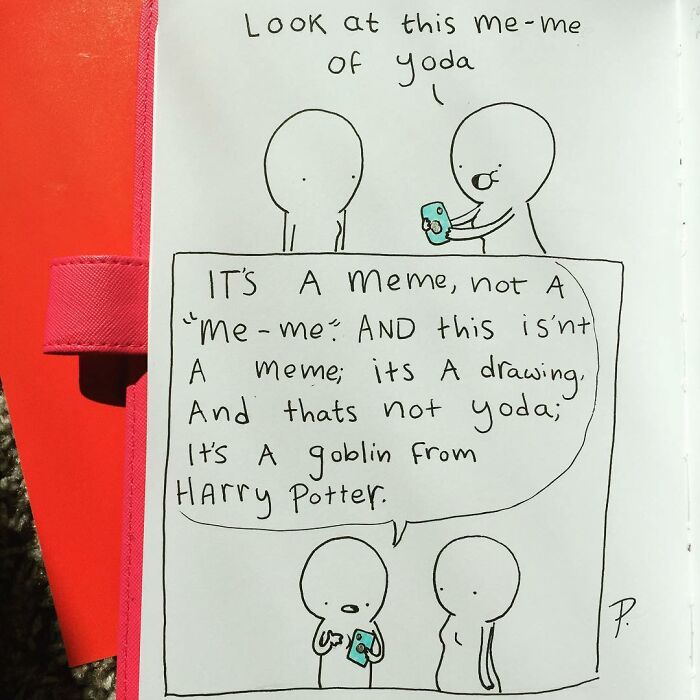 Look at this me-me
of yoda
IT'S A meme, not A
"me-me". AND this is'nt
A meme; its A drawing.
And thats not yoda;
It's A goblin from
HArry Potter.
P.